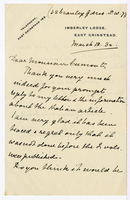 IMBERLEY LODGE,
EAST GRINSTEAD.
March 12. 32
Dear Monsieur Cumont,
Thank you very much
indeed for your prompt
reply to my letter & the information
about the Italian article.
I am very glad it has been
traced & regret only that it
was not done before the R. vol.
was published.
Do you think it would be